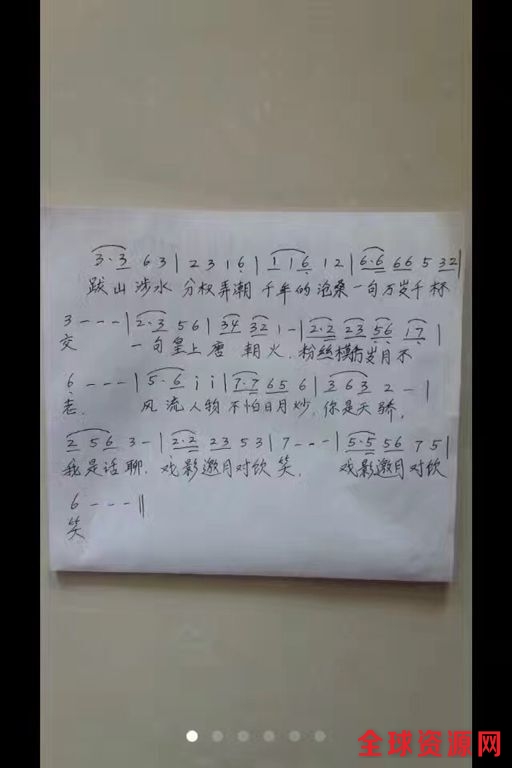 3·3 6 3 | 2 3 1 6 | 1 1 6 1 2 | 6·6 6 6 5 3 2 |
跋山涉水 分权弄潮 千年的沧桑 一句万岁千杯
3 - - - | 2·3 5 6 | 3 4 3 2 1 - | 2·2 2 3 5 6 1 7 |
交 一句皇上唐 朝火. 粉丝 岁月不
6 - - - | 5·6 i i | 7·7 6 5 6 | 3 6 3 2 - |
老. 风流人物 不怕日月炒, 你是天骄,
2 5 6 3 - | 2·2 2 3 5 3 | 7 - - - | 5·5 5 6 7 5 |
我是话聊. 戏影邀月对饮 笑. 戏影邀月对饮
6 - - - ‖
笑
全球资源网